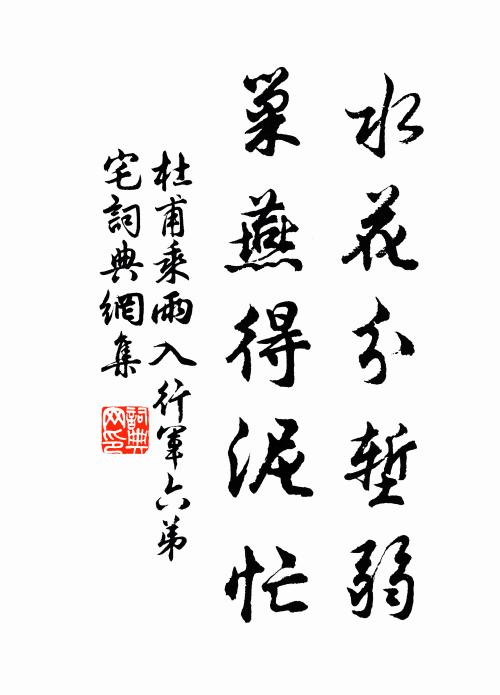 水花分塹弱
巢燕得泥忙
杜甫乘雨入行軍六弟
宅詞典網集
詞典网印